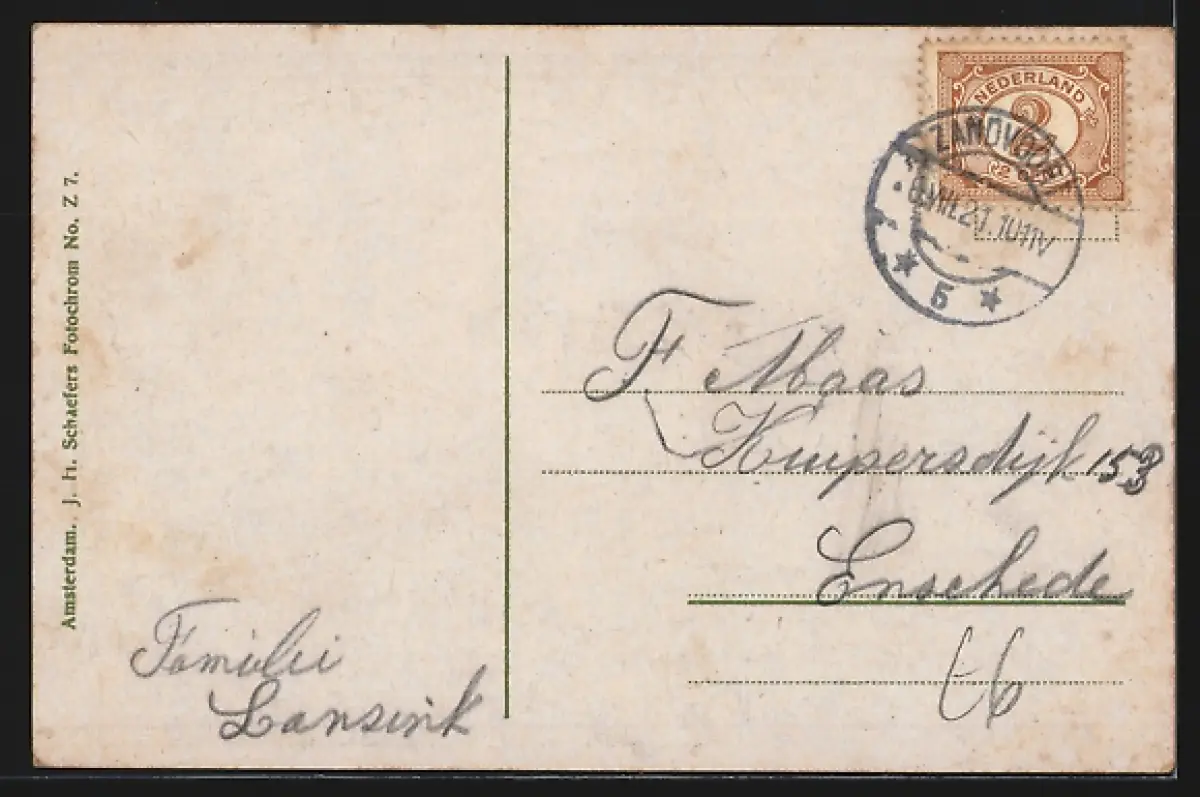 Amsterdam. J. H. Schaefers Fotochrom No. Z 7.
NEDERLAND
2
ZANDVOORT
8.VIII.21.10-11V
5
F Maas
Kuipersdijk 153
Enschede
Familie
Lansink